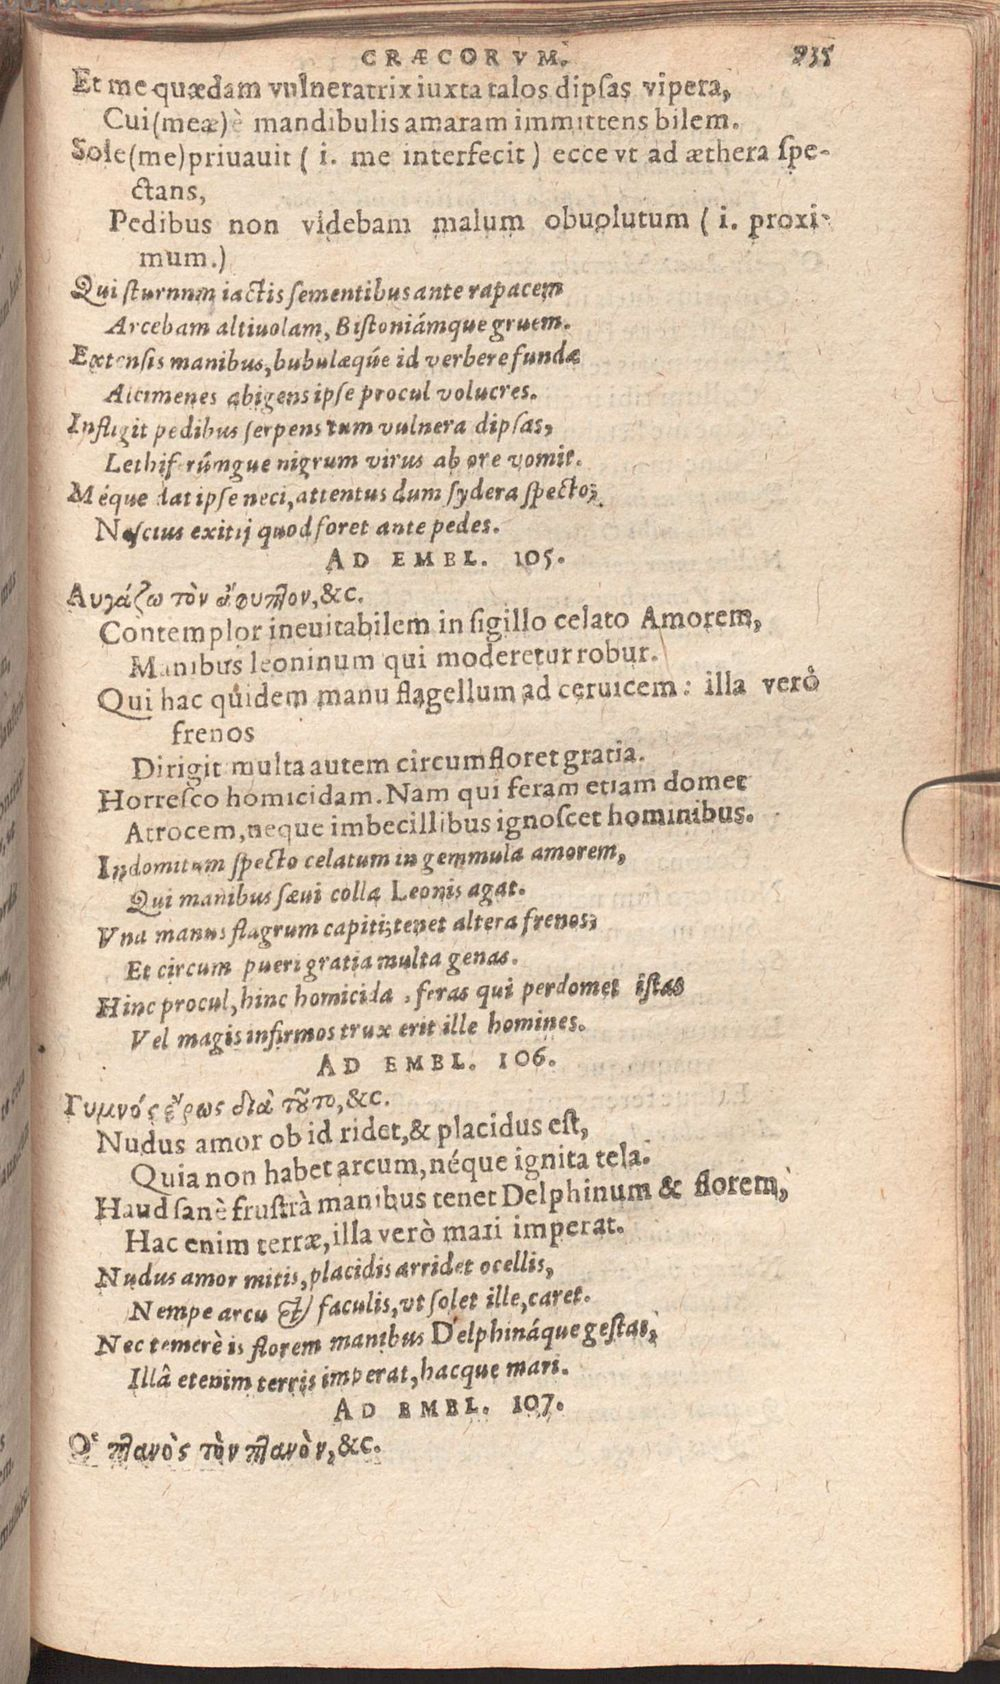 CRÆCORVM. 935
Et me quædam vulneratrix iuxta talos dipſas vipera,
Cui(meæ)è mandibulis amaram immittens bilem.
Sole(me)priuauit ( i. me interfecit ) ecce vt ad æthera ſpe-
ctans,
Pedibus non videbam malum obuolutum ( i. proxi-
mum.)
Qui ſturnnm iactis ſementibus ante rapacem
Arcebam altiuolam, Biſtoniámque gruem.
Extenſis manibus, bubulæqúe id verbere fundæ
Alcimenes abigens ipſe procul volucres.
Infligit pedibus ſerpens tum vulnera dipſas,
Lethiferúmque nigrum virus ab ore vomit.
Méque dat ipſe neci, attentus dum ſydera ſpecto,
Neſcius exitij quod foret ante pedes.
AD EMBL. 105.
Αυγάζω τὸν ἀφυκτον, &c.
Contemplor ineuitabilem in ſigillo celato Amorem,
Manibus leoninum qui moderetur robur.
Qui hac quidem manu flagellum ad ceruicem: illa verò
frenos
Dirigit multa autem circumfloret gratia.
Horreſco homicidam. Nam qui feram etiam domet
Atrocem, neque imbecillibus ignoſcet hominibus.
Indomitum ſpecto celatum in gemmula amorem,
Qui manibus ſæui colla Leonis agat.
Vna manus flagrum capiti; tenet altera frenos;
Et circum pueri gratia multa genas.
Hinc procul, hinc homicida, feras qui perdomet iſtas
Vel magis infirmos trux erit ille homines.
AD EMBL. 106.
Γυμνός ἔρως διὰ τοῦτο, &c.
Nudus amor ob id ridet, & placidus eſt,
Quia non habet arcum, néque ignita tela.
Haud ſanè fruſtrà manibus tenet Delphinum & florem,
Hac enim terræ, illa verò mari imperat.
Nudus amor mitis, placidis arridet ocellis,
Nempe arcu & faculis, vt ſolet ille, caret.
Nec temerè is florem manibus Delphináque geſtat,
Illâ etenim terris imperat, hacque mari.
AD EMBL. 107.
Ὁ πλανὸς τὸν πλανὸν, &c.